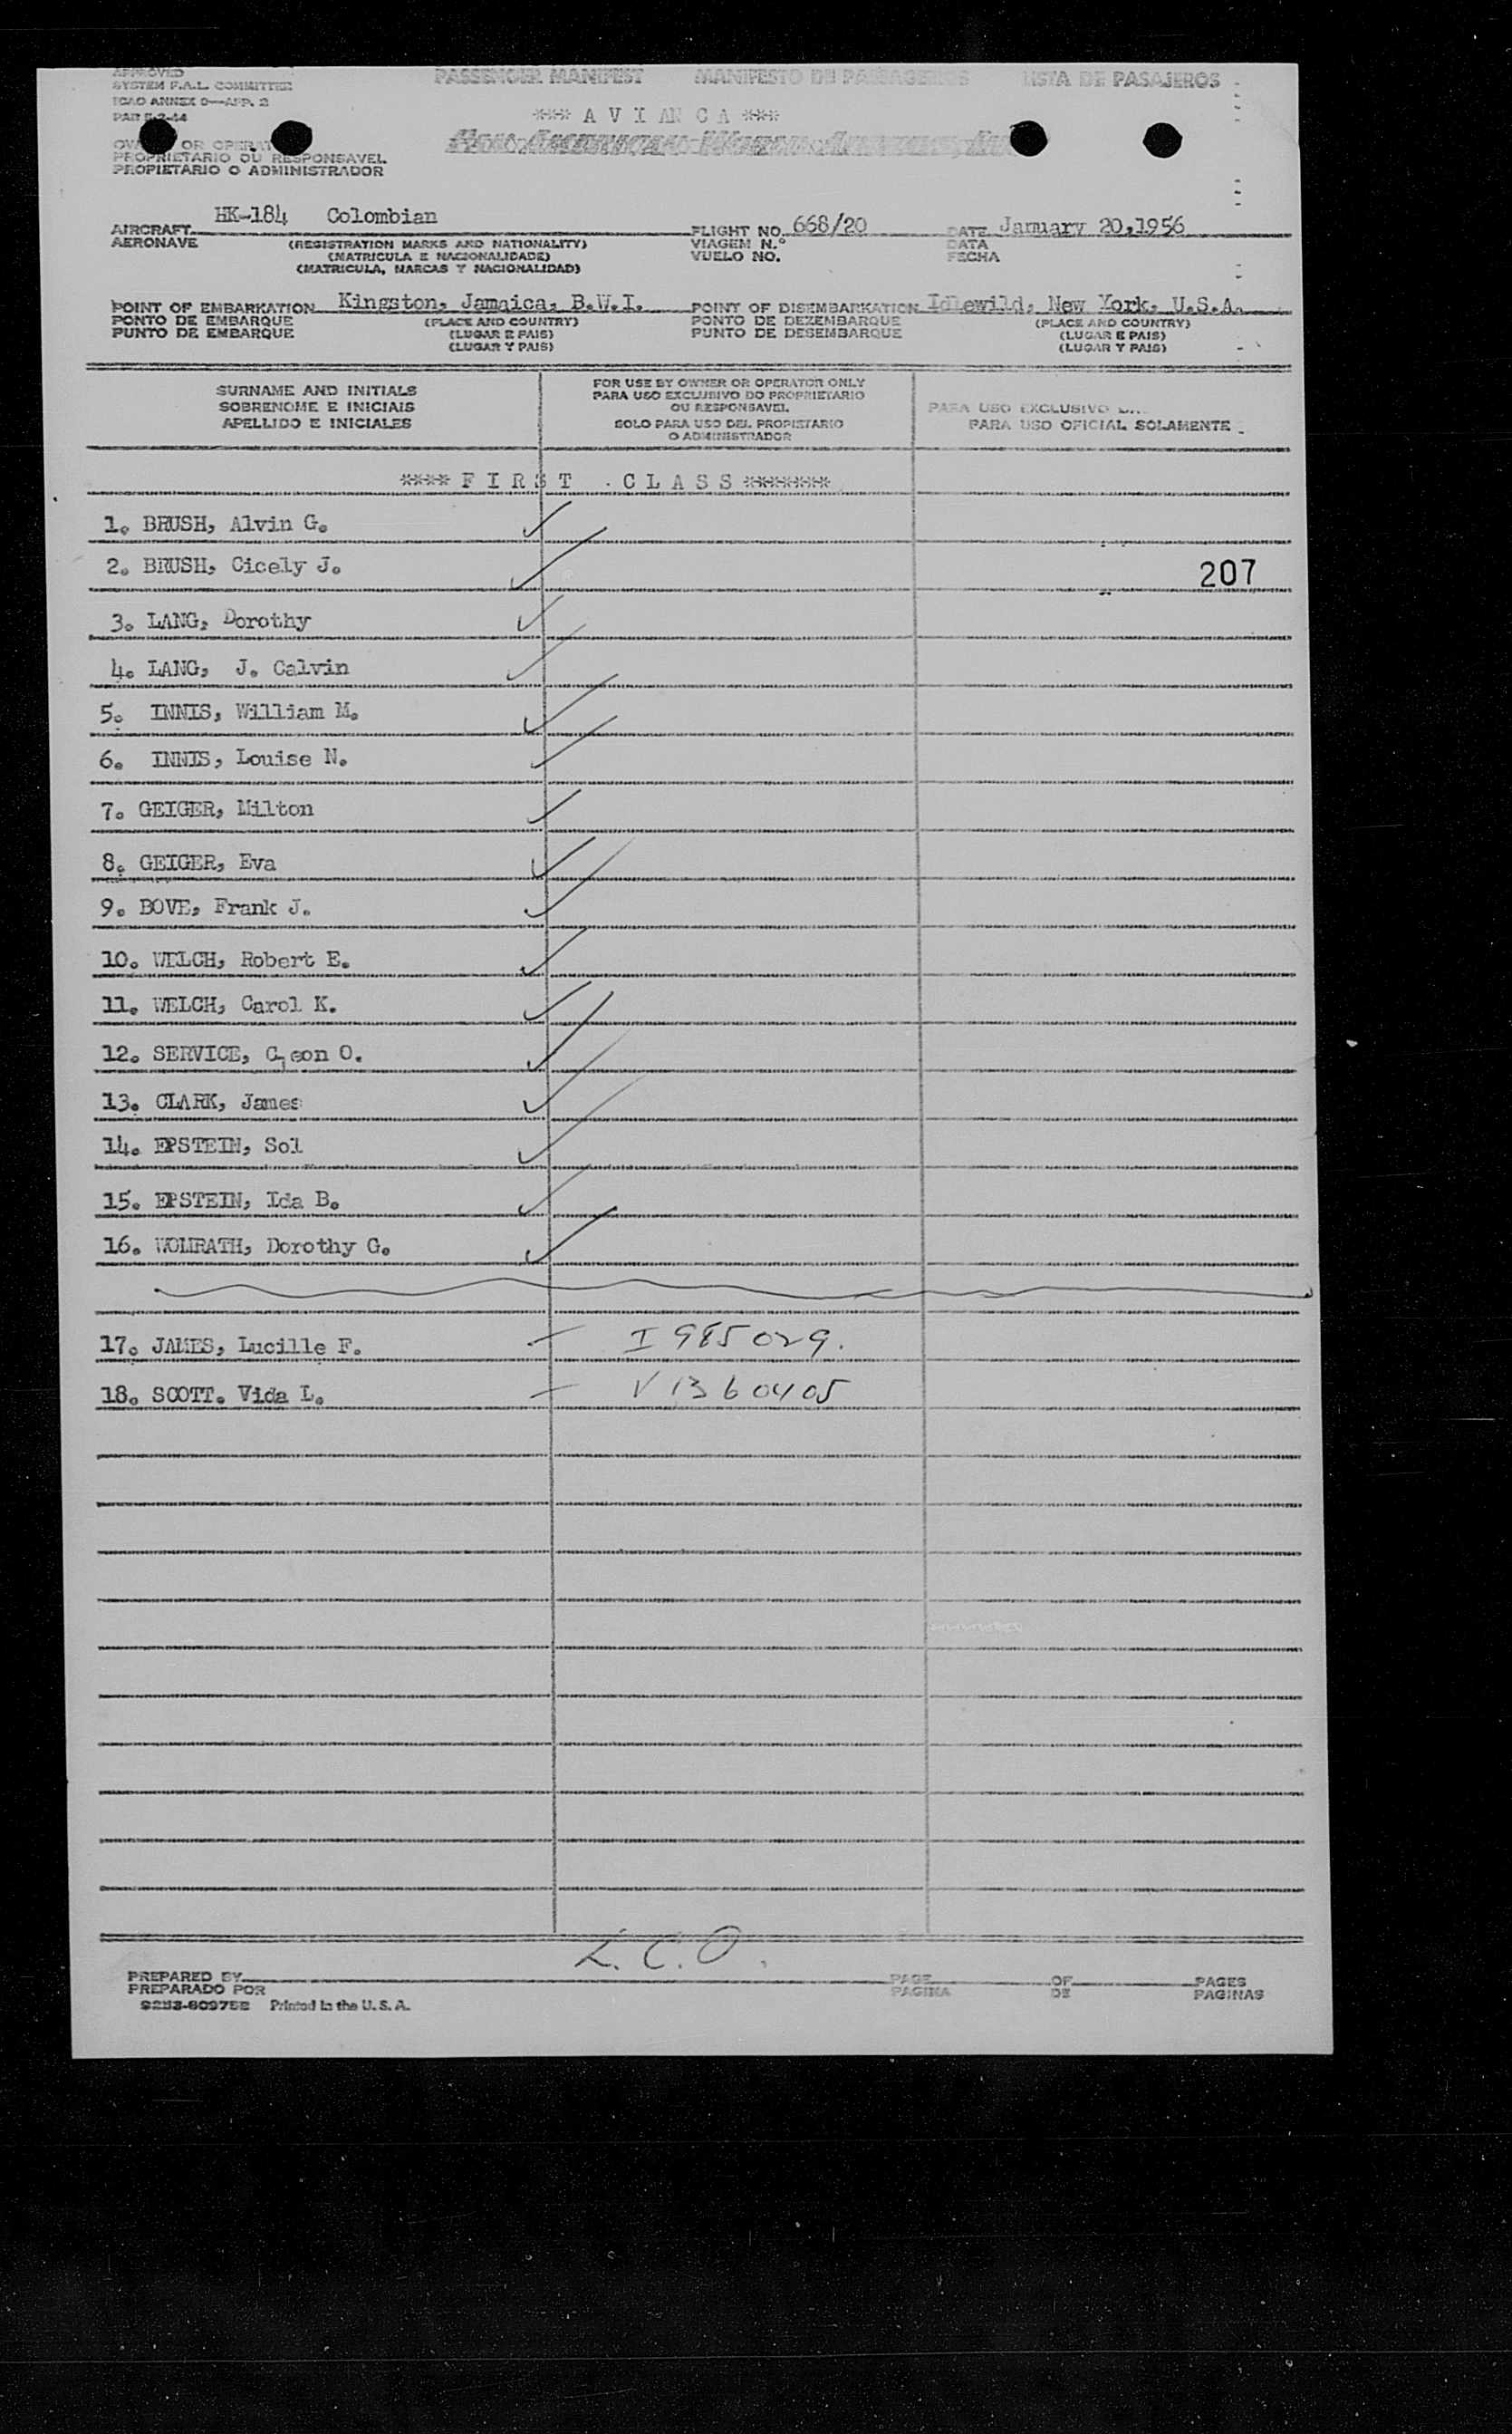 APPROVED
SYSTEM F.A.L. COMMITTEE
ICAO ANNEX 9—APP. 2
PAR 5-2-44
PASSENGER MANIFEST MANIFESTO DE PASSAGEIROS LISTA DE PASAJEROS
*** A V I A N C A ***
OR OPERAT
PROPRIETARIO OU RESPONSAVEL
PROPIETARIO O ADMINISTRADOR
AIRCRAFT HK-184 Colombian FLIGHT NO. 668/20 DATE January 20,1956
AERONAVE (REGISTRATION MARKS AND NATIONALITY) VIAGEM N.º DATA
(MATRICULA E NACIONALIDADE) VUELO NO. FECHA
(MATRICULA, MARCAS Y NACIONALIDAD)
POINT OF EMBARKATION Kingston, Jamaica, B.W.I. POINT OF DISEMBARKATION Idlewild, New York, U.S.A.
PONTO DE EMBARQUE (PLACE AND COUNTRY) PONTO DE DEZEMBARQUE (PLACE AND COUNTRY)
PUNTO DE EMBARQUE (LUGAR E PAIS) PUNTO DE DESEMBARQUE (LUGAR E PAIS)
(LUGAR Y PAIS) (LUGAR Y PAIS)
SURNAME AND INITIALS
SOBRENOME E INICIAIS
APELLIDO E INICIALES
FOR USE BY OWNER OR OPERATOR ONLY
PARA USO EXCLUSIVO DO PROPRIETARIO
OU RESPONSAVEL
SOLO PARA USO DEL PROPIETARIO
O ADMINISTRADOR
PARA USO EXCLUSIVO
PARA USO OFICIAL SOLAMENTE
**** F I R S T . C L A S S ******
1. BRUSH, Alvin G.
2. BRUSH, Cicely J. 207
3. LANG, Dorothy
4. LANG, J. Calvin
5. INNIS, William M.
6. INNIS, Louise N.
7. GEIGER, Milton
8. GEIGER, Eva
9. BOVE, Frank J.
10. WELCH, Robert E.
11. WELCH, Carol K.
12. SERVICE, O.
13. CLARK, James
14. EPSTEIN, Sol
15. EPSTEIN, Ida B.
16. WOLRATH, Dorothy G.
17. JAMES, Lucille F. — I 985029.
18. SCOTT. Vida L. — V 1360405
L. C. O.
PREPARED BY PAGE OF PAGES
PREPARADO POR PAGINA DE PAGINAS
Printed in the U. S. A.